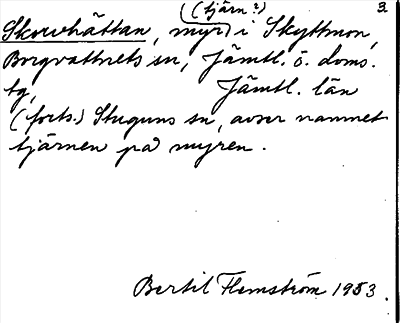 (tjärn?) 3.
Skouvhättan, myr) i Skyttmon,
Borgvattnets sn, Jämtl. ö. doms.
tg, Jämtl. län
(forts.) Stuguns sn, avser namnet
tjärnen på myren.
Bertil Flemström 1983.